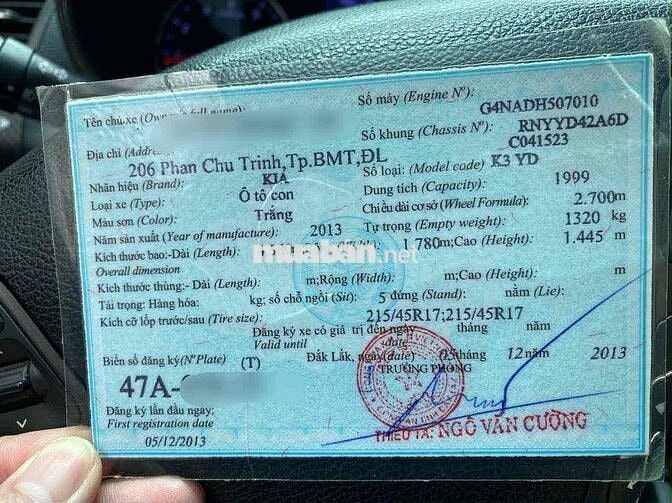 Tên chủ xe (Owner's full name):
Số máy (Engine Nº): G4NADH507010
Số khung (Chassis Nº): RNYYD42A6D
C041523
Địa chỉ (Address):
206 Phan Chu Trinh,Tp.BMT,ĐL
Nhãn hiệu (Brand): KIA
Số loại: (Model code) K3 YD
Loại xe (Type): Ô tô con
Dung tích (Capacity): 1999
Màu sơn (Color): Trắng
Chiều dài cơ sở (Wheel Formula): 2.700m
Năm sản xuất (Year of manufacture): 2013
Tự trọng (Empty weight): 1320 kg
Kích thước bao:-Dài (Length): 1.780m;Cao (Height): 1.445 m
Overall dimension
muaban.net
Kích thước thùng:-Dài (Length): m;Rộng (Width): m;Cao (Height): m
Tải trọng: Hàng hóa: kg; số chỗ ngồi (Sit): 5 đứng (Stand): nằm (Lie):
Kích cỡ lốp trước/sau (Tire size): 215/45R17;215/45R17
Đăng ký xe có giá trị đến ngày tháng năm
Valid until date
Biển số đăng ký(NºPlate) (T)
Đắk Lắk, ngày(date) 05 tháng 12 năm 2013
TRƯỞNG PHÒNG
47A-
Đăng ký lần đầu ngay:
First registration date
05/12/2013
THIẾU TÁ: NGÔ VĂN CƯỜNG